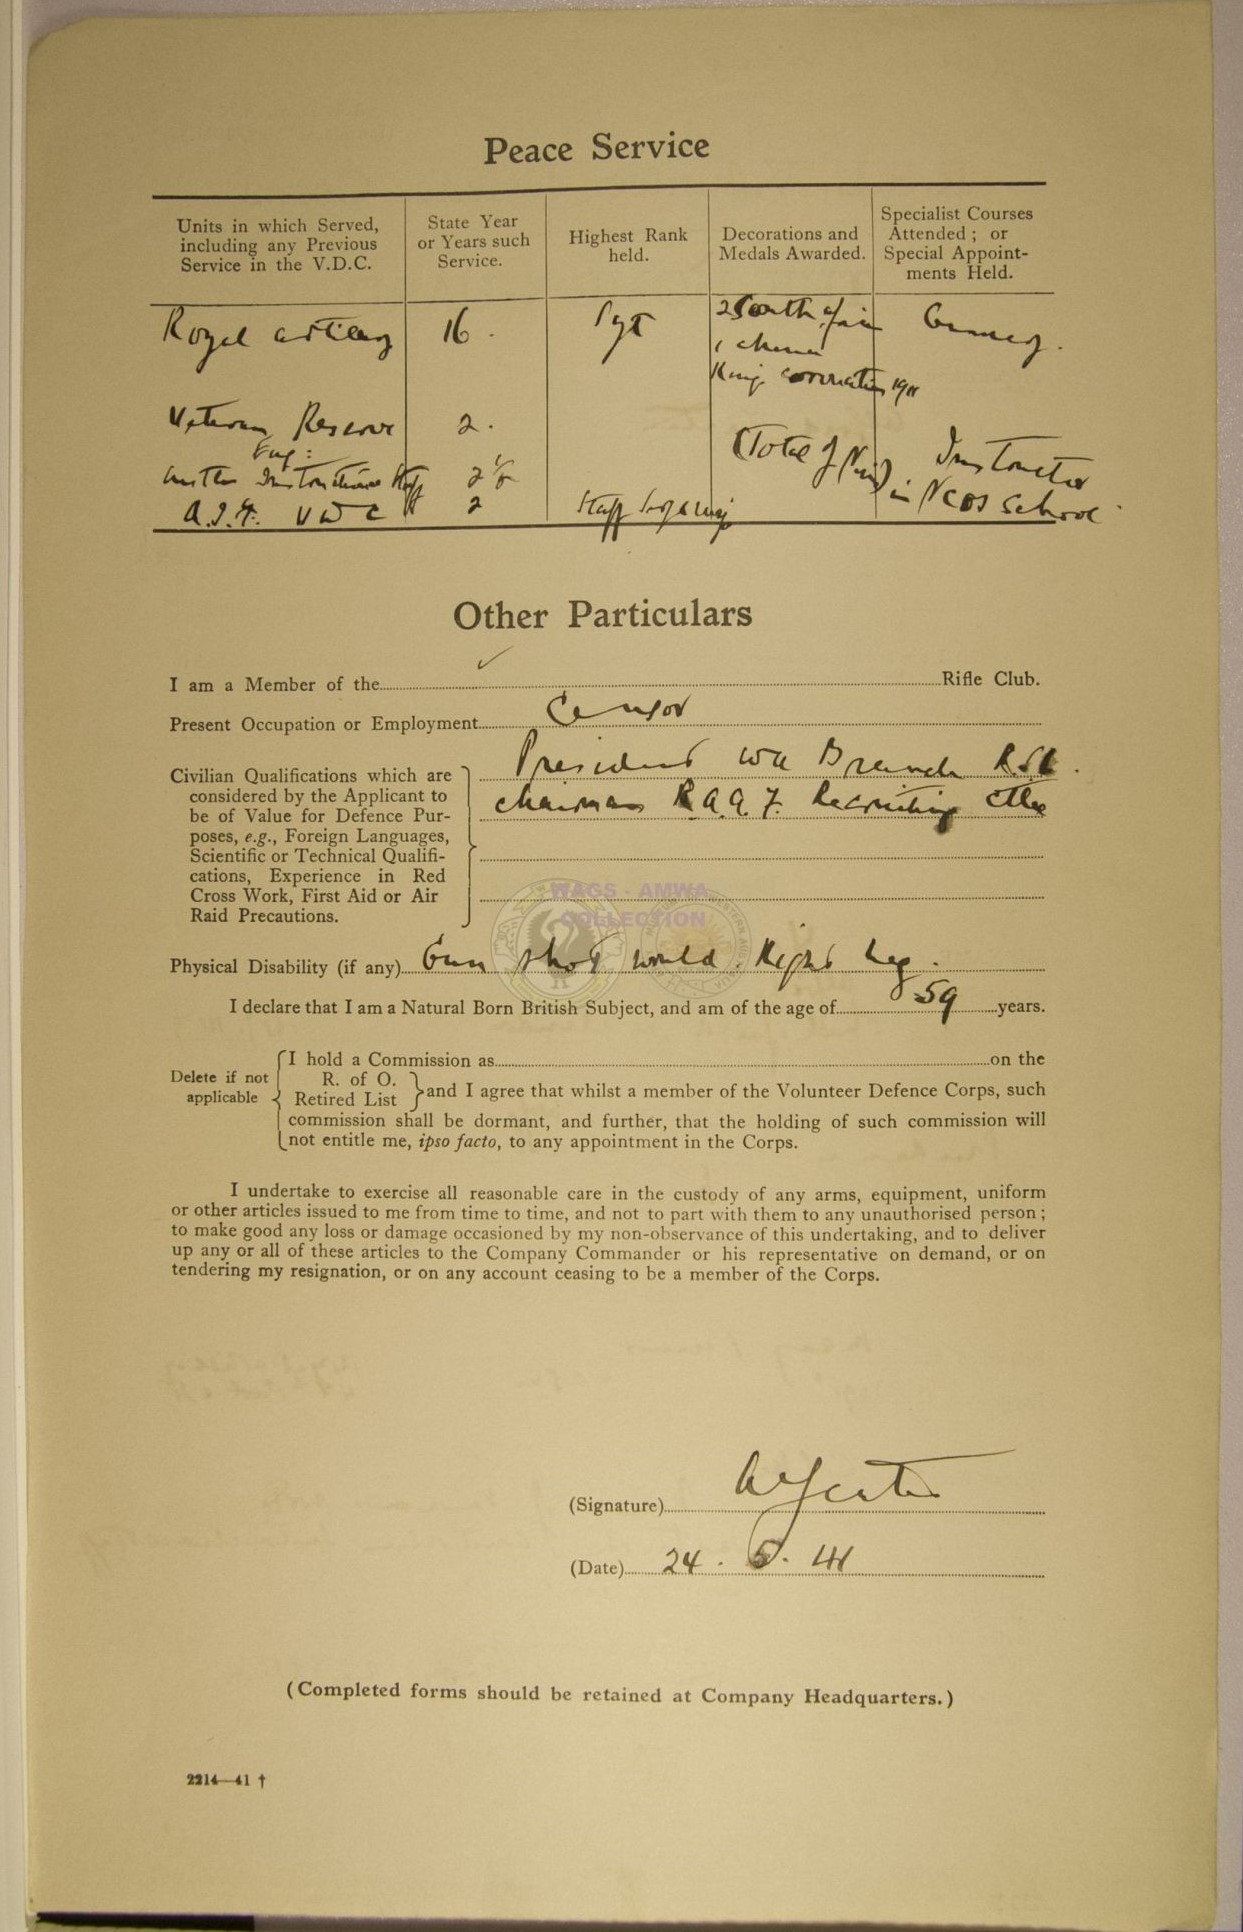 Peace Service
Units in which Served, including any Previous Service in the V.D.C.
State Year or Years such Service.
Highest Rank held.
Decorations and Medals Awarded.
Specialist Courses Attended ; or Special Appoint- ments Held.
Royal artillery 16. Sgt 2 South africa Gunnery.
1 China
King coronation 1911
Veteran Reserve 2. (Total of Nine) Instructor
Eng:
Instructional Staff 2 in NCOs School
A.I.F. 2 Staff
Other Particulars
I am a Member of the Rifle Club.
Present Occupation or Employment Censor
Civilian Qualifications which are President WA Branch RSL.
considered by the Applicant to chairman R.A.A.F. Recruiting cttee
be of Value for Defence Pur-
poses, e.g., Foreign Languages,
Scientific or Technical Qualifi-
cations, Experience in Red
Cross Work, First Aid or Air
Raid Precautions.
WAGS - AMWA
COLLECTION
Physical Disability (if any) Gun shot would. Right Leg.
I declare that I am a Natural Born British Subject, and am of the age of 59 years.
I hold a Commission as on the
Delete if not applicable
R. of O.
Retired List
and I agree that whilst a member of the Volunteer Defence Corps, such
commission shall be dormant, and further, that the holding of such commission will
not entitle me, ipso facto, to any appointment in the Corps.
I undertake to exercise all reasonable care in the custody of any arms, equipment, uniform
or other articles issued to me from time to time, and not to part with them to any unauthorised person ;
to make good any loss or damage occasioned by my non-observance of this undertaking, and to deliver
up any or all of these articles to the Company Commander or his representative on demand, or on
tendering my resignation, or on any account ceasing to be a member of the Corps.
(Signature)
(Date) 24 . 5 . 41
(Completed forms should be retained at Company Headquarters.)
2214—41 †